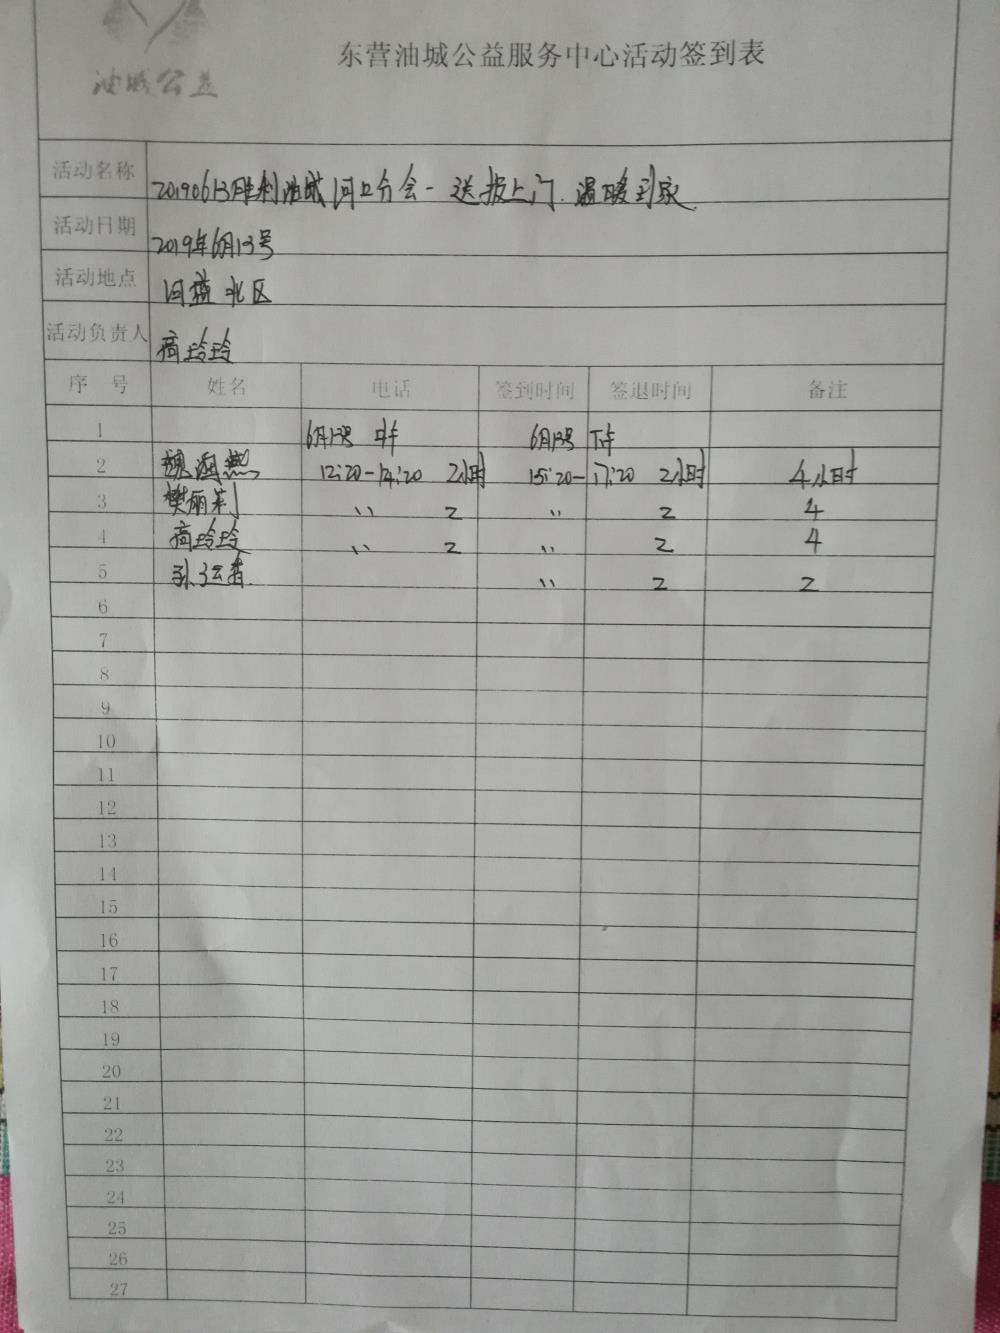 油城公益
东营油城公益服务中心活动签到表
活动名称 20190613胜利油城河口分会-送报上门.温暖到家
活动日期 2019年6月13号
活动地点 河盐北区
活动负责人 高玲玲
序 号 姓名 电话 签到时间 签退时间 备注
1 6月13号 中午 6月13号 下午
2 魏海燕 12:20-14:20 2小时 15:20-17:20 2小时 4小时
3 樊丽莉 〃 2 〃 2 4
4 高玲玲 〃 2 〃 2 4
5 孙 〃 2 2
6
7
8
9
10
11
12
13
14
15
16
17
18
19
20
21
22
23
24
25
26
27